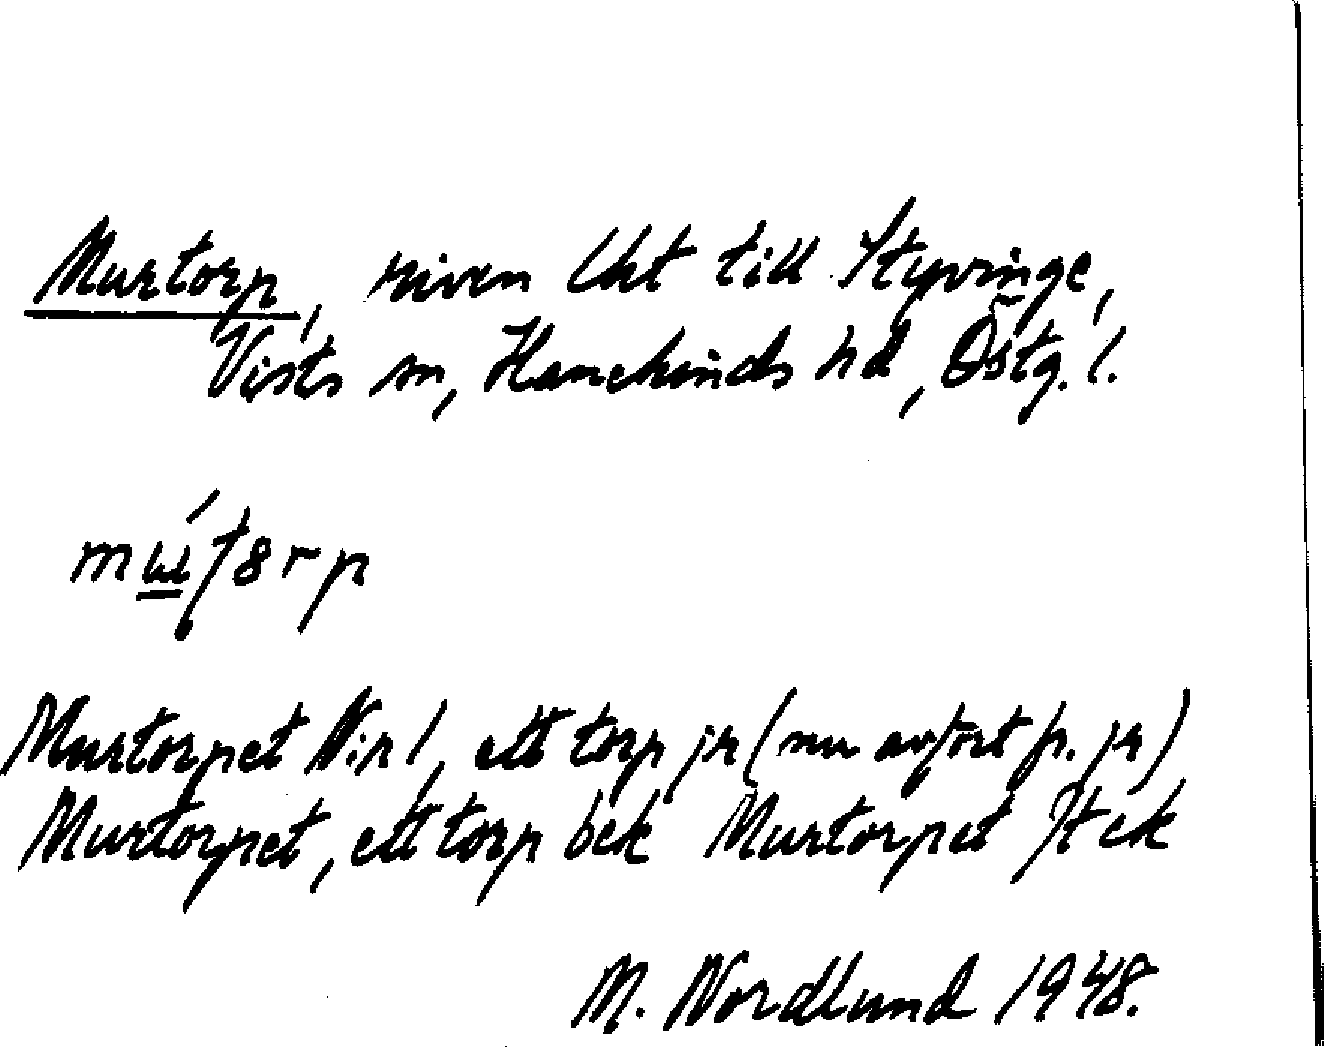 Murtorp, riven lht till Styvinge,
Vists sn, Hanekinds hd, Östg. l.
Murtorpet Nir l, ett torp jr (nu avfört fr. jr)
Murtorpet, ett torp bek Murtorpet Jt ek
M. Nordlund 1948.